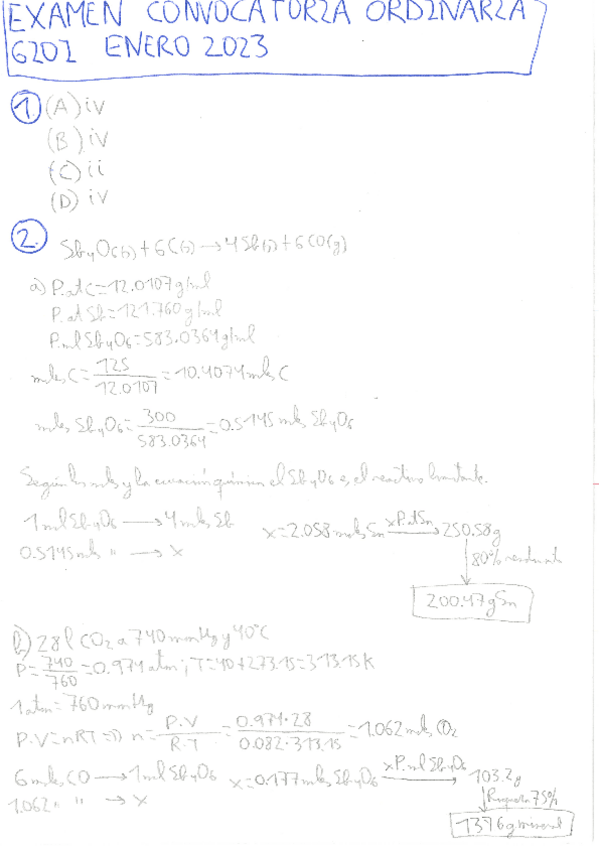 EXAMEN CONVOCATORIA ORDINARIA
6202 ENERO 2023
1 (A) iv
(B) iv
(C) ii
(D) iv
2. Sb4O(s) + 6C(s) → 4Sb(s) + 6CO(g)
a) P.at C = 12.0107 g/mol
P.at Sb = 121.760 g/mol
P.ml Sb4O6 = 583.0364 g/mol
moles C = 125 / 12.0107 = 10.4074 moles C
moles Sb4O6 = 300 / 583.0364 = 0.5145 moles Sb4O6
Según los moles y la ecuación química el Sb4O6 es el reactivo limitante.
1 mol Sb4O6 → 4 moles Sb x = 2.058 moles Sn xP.atSn → 250.58 g
0.5145 moles " → x
80% rendimiento
200.47 g Sn
b) 28 l CO2 a 740 mmHg y 40°C
P = 740 / 760 = 0.974 atm; T = 40 + 273.15 = 313.15 K
1 atm = 760 mmHg
P.V = nRT => n = P.V / R.T = 0.974·28 / 0.082·313.15 = 1.062 moles CO2
6 moles CO → 1 mol Sb4O6 x = 0.177 moles Sb4O6 xP.ml Sb4O6 → 103.2 g
1.062 " " → x
Riqueza 75%
137.6 g mineral